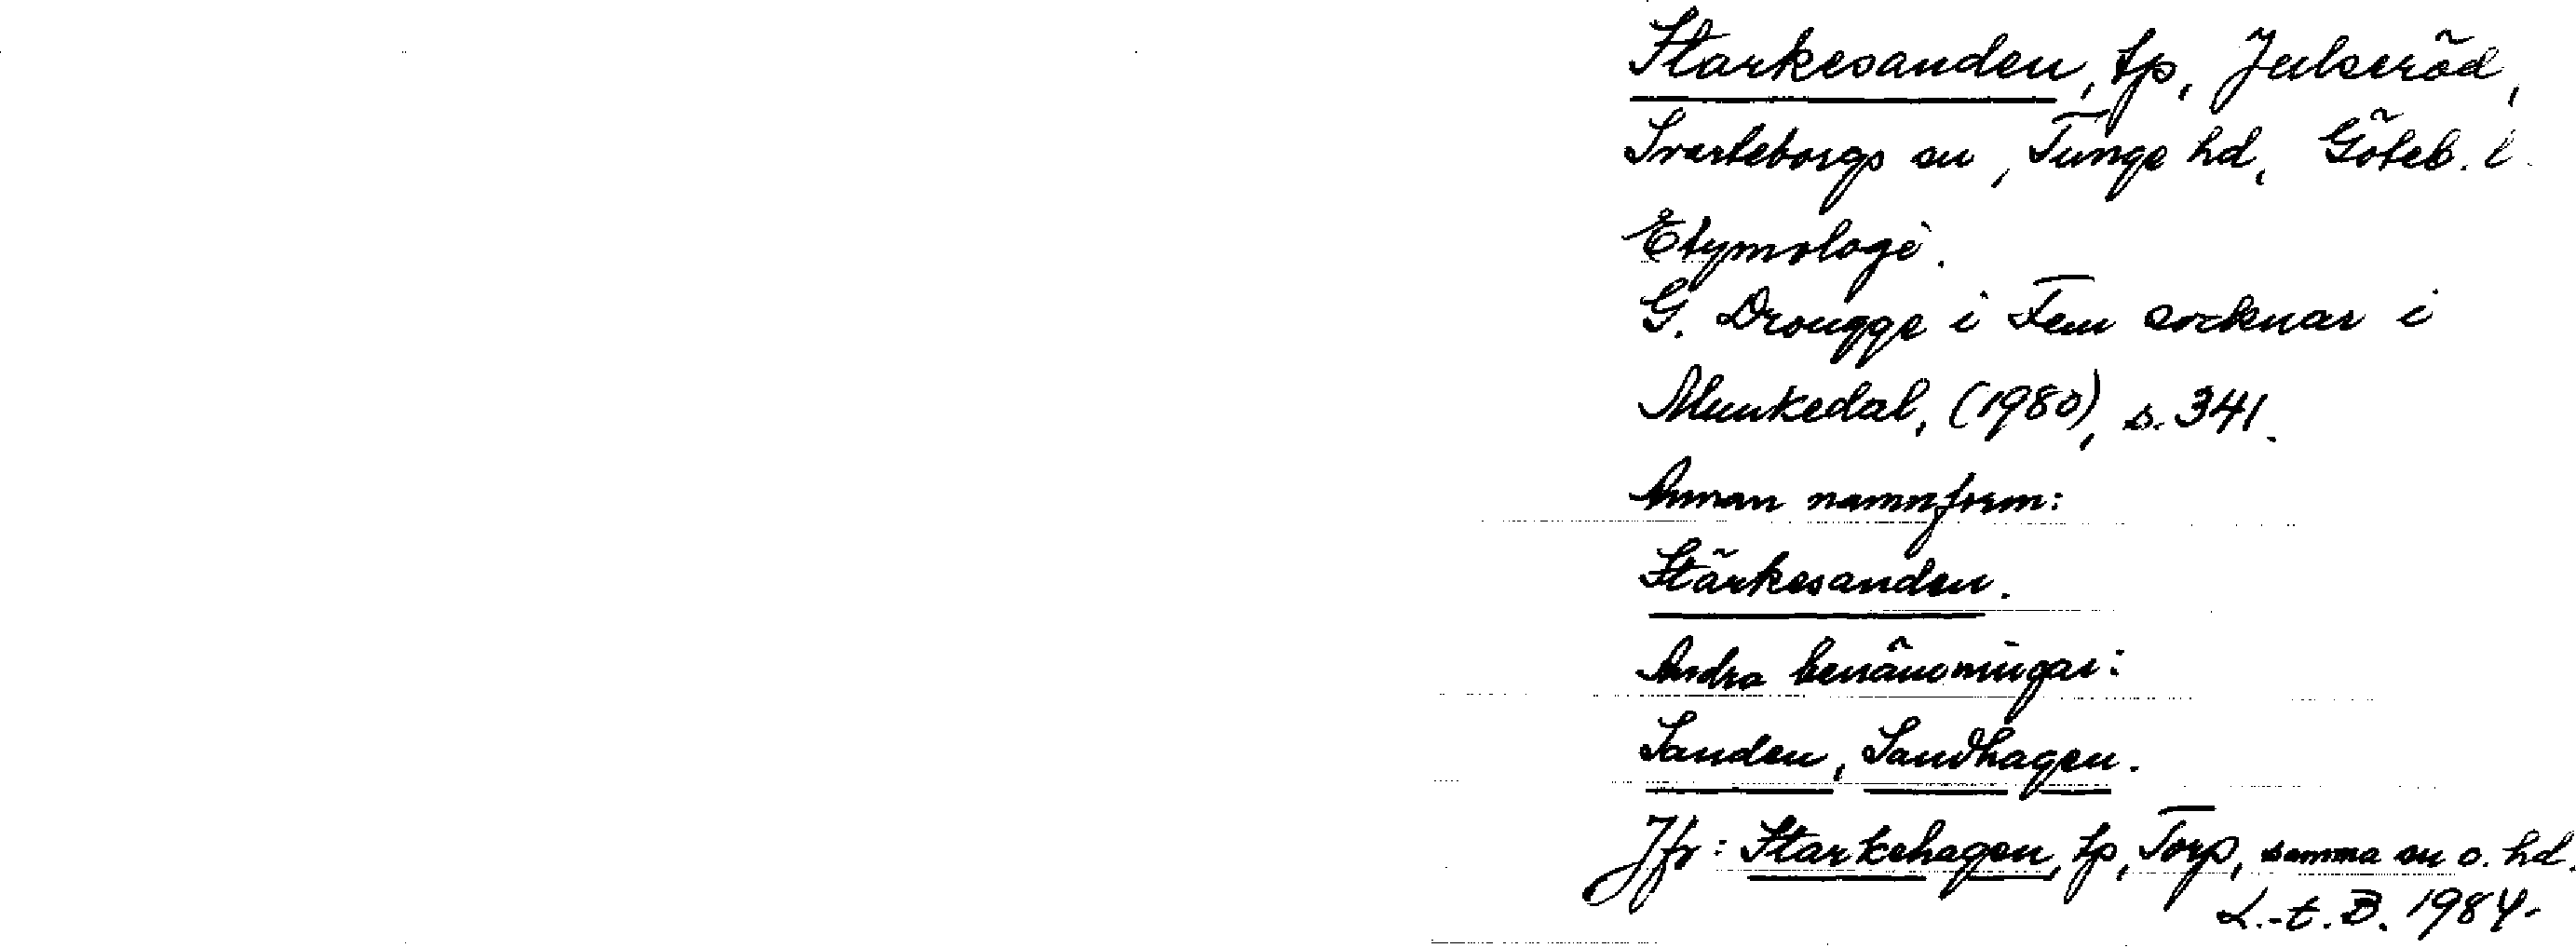 Starkesanden, tp, Julseröd,
Svarteborgs sn, Tunge hd, Göteb. l.
Etymologi.
G. Drougge i Fem socknar i
Munkedal, (1980), s. 341.
Annan namnform:
Stärkesanden.
Andra benämningar:
Sanden, Sandhagen.
Jfr: Starkehagen, tp, Torp, samma sn o. hd.
L.-t. B. 1984.